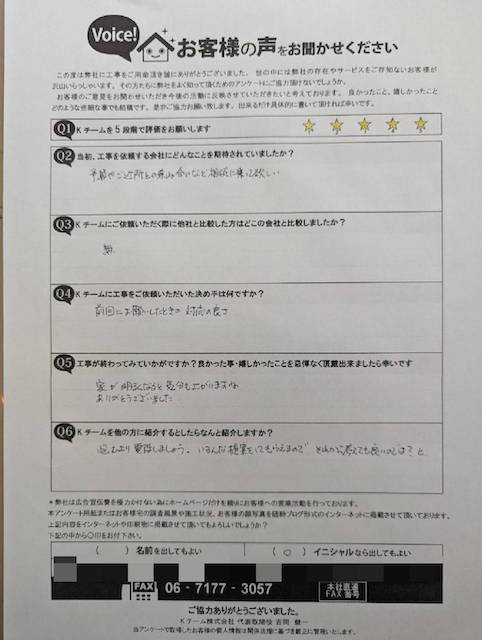 Voice!
お客様の声をお聞かせください
この度は弊社に工事をご用命頂き誠にありがとうございました。世の中には弊社の存在やサービスをご存知ないお客様が
沢山いらっしゃいます。その方たちに弊社をよく知って頂くためのアンケートにご協力頂けないでしょうか。
お客様のご意見をお聞かせいただき今後の活動に反映させていただきたいと考えております。良かったこと、嬉しかったこと
どのような些細な事でも結構です。是非ご協力お願い致します。出来るだけ具体的に書いて頂ければ幸いです。
Q1 Kチームを5段階で評価をお願いします
Q2 当初、工事を依頼する会社にどんなことを期待されていましたか?
予算やご近所との兼ね合いなど相談に乗って欲しい
Q3 Kチームにご依頼いただく際に他社と比較した方はどこの会社と比較しましたか?
無
Q4 Kチームに工事をご依頼いただいた決め手は何ですか?
前回にお願いしたときの対応の良さ
Q5 工事が終わってみていかがですか?良かった事・嬉しかったことを忌憚なく頂戴出来ましたら幸いです
家が明るくなると気分も上がりますね
ありがとうございました
Q6 Kチームを他の方に紹介するとしたらなんと紹介しますか?
しましょう。いろんな提案をしてもらえるので それから考えても良いのでは?と
*弊社は広告宣伝費を極力かけない為にホームページだけを頼りにお客様への営業活動を行っております。
本アンケート用紙またはお客様宅の調査風景や施工状況、お客様の顔写真を随時ブログ形式のインターネットに掲載させて頂いております。
上記内容をインターネットや印刷物に掲載させて頂いてもよろしいでしょうか?
下記の中から〇印をお付下さい。
( )名前を出してもよい (○)イニシャルなら出してもよい
FAX 06-7177-3057 本社直通FAX番号
ご協力ありがとうございました。
Kチーム株式会社 代表取締役 吉岡 健一
当アンケートで取得したお客様の個人情報は関係法規に基づき厳正に管理いたします。